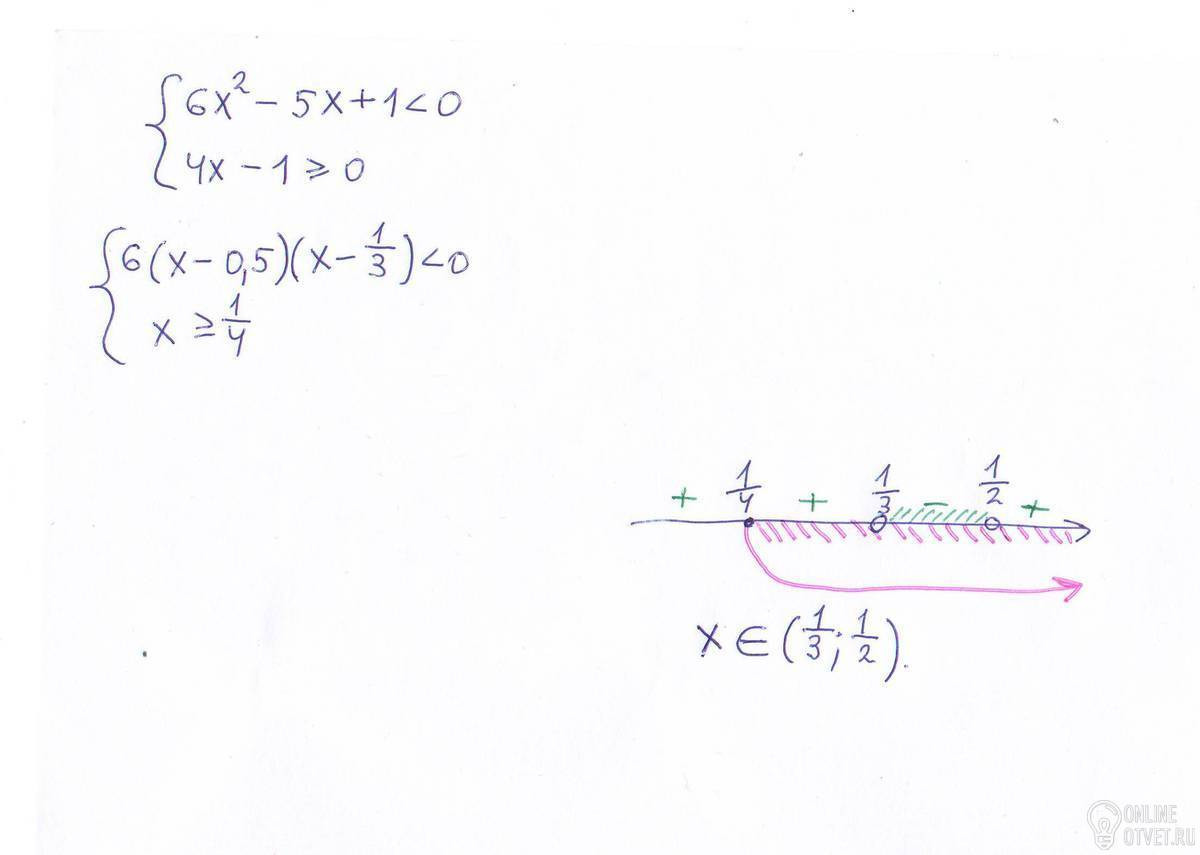 { 6x² − 5x + 1 < 0
4x − 1 ≥ 0
{ 6(x − 0,5)(x − 1/3) < 0
x ≥ 1/4
+ 1/4 + 1/3 − 1/2 +
x ∈ (1/3; 1/2).
ONLINE
OTVET.RU